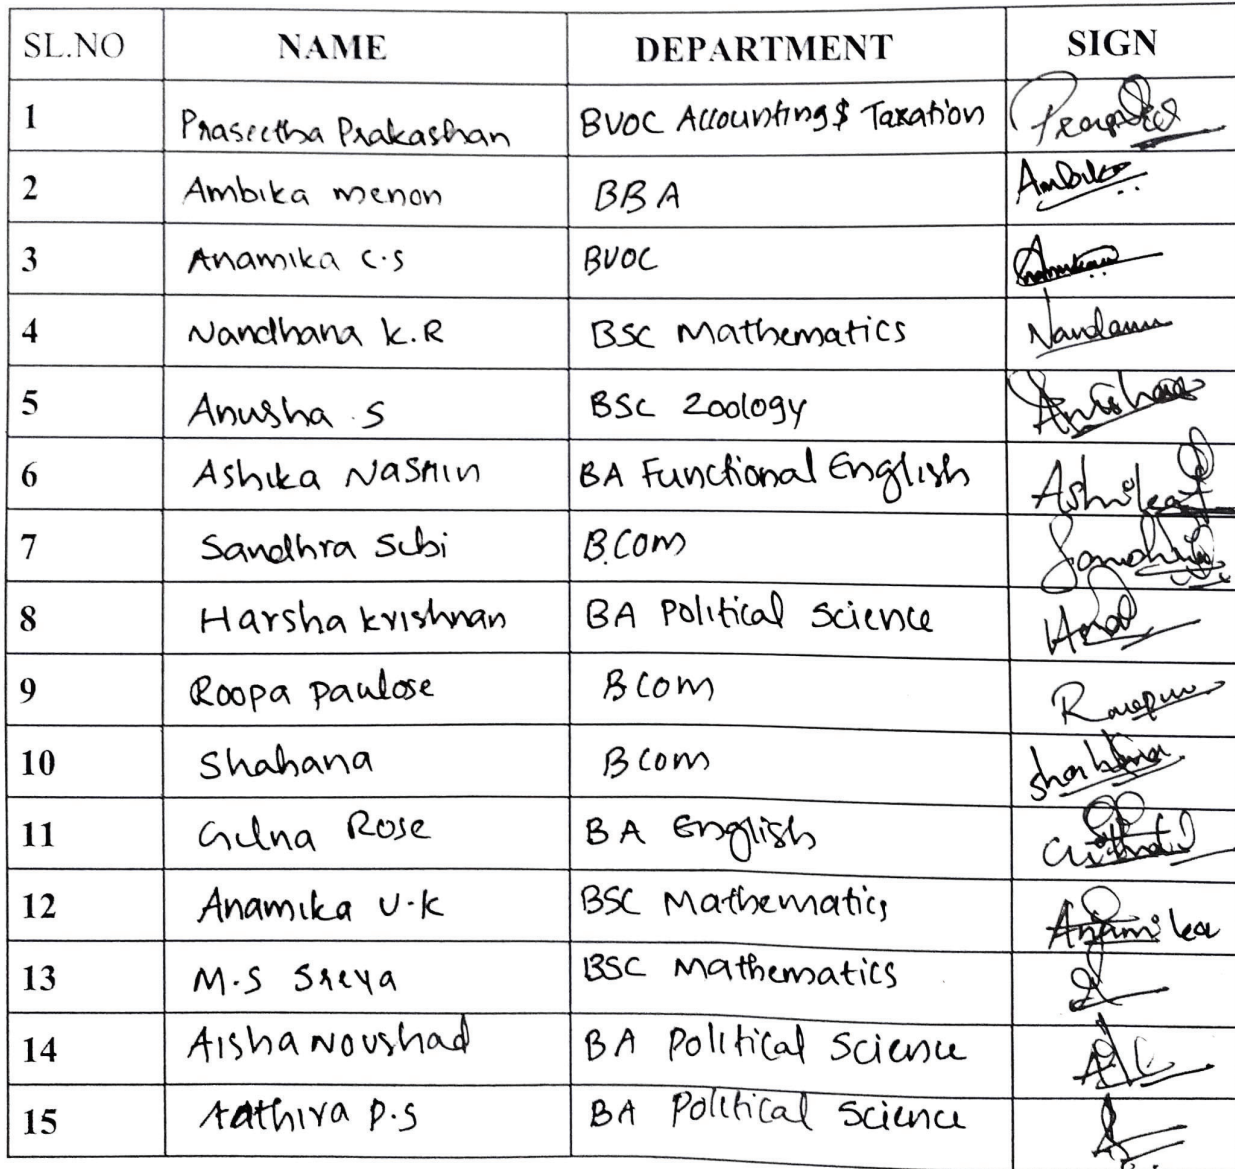 SL.NO NAME DEPARTMENT SIGN
1 Praseetha Prakashan BVOC Accounting $ Taxation
2 Ambika menon BBA Ambika
3 Anamika C.S BVOC
4 Nandhana K.R BSC Mathematics
5 Anusha S BSC Zoology
6 Ashika Nasrin BA Functional English
7 Sandhra Sibi B.COM
8 Harsha krishnan BA Political Science
9 Roopa paulose BCOM
10 Shahana BCOM
11 Gilna Rose BA English
12 Anamika U.K BSC Mathematics Anamika
13 M.S Sreya BSC Mathematics
14 Aisha Noushad BA Political Science
15 Aathira P.S BA Political Science